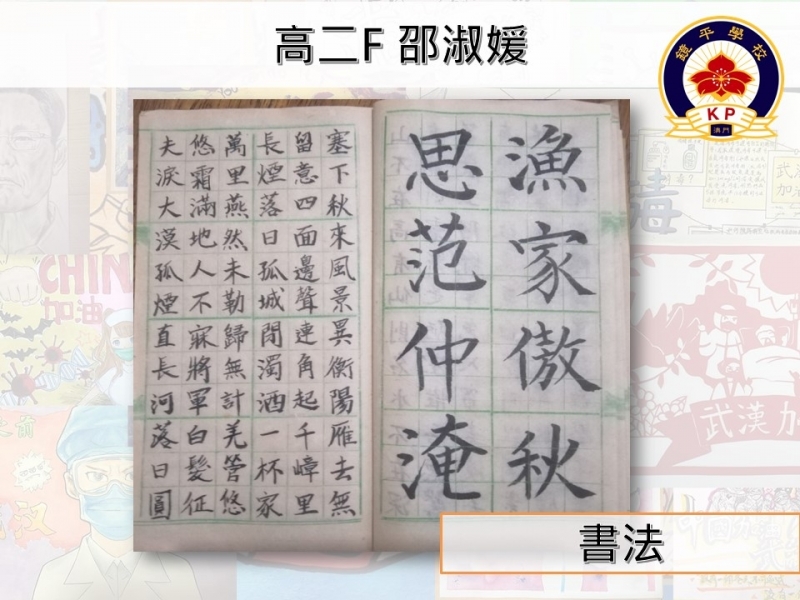 高二F 邵淑媛
鏡平學校
KP
澳門
漁家傲秋
思范仲淹
塞下秋來風景異衡陽雁去無
留意四面邊聲連角起千嶂里
長煙落日孤城間濁酒一杯家
萬里燕然未勒歸無計羌管悠
悠霜滿地人不寐將軍白髮征
夫淚大漠孤煙直長河落日圓
書法
CHIN
加油
毒
武漢加